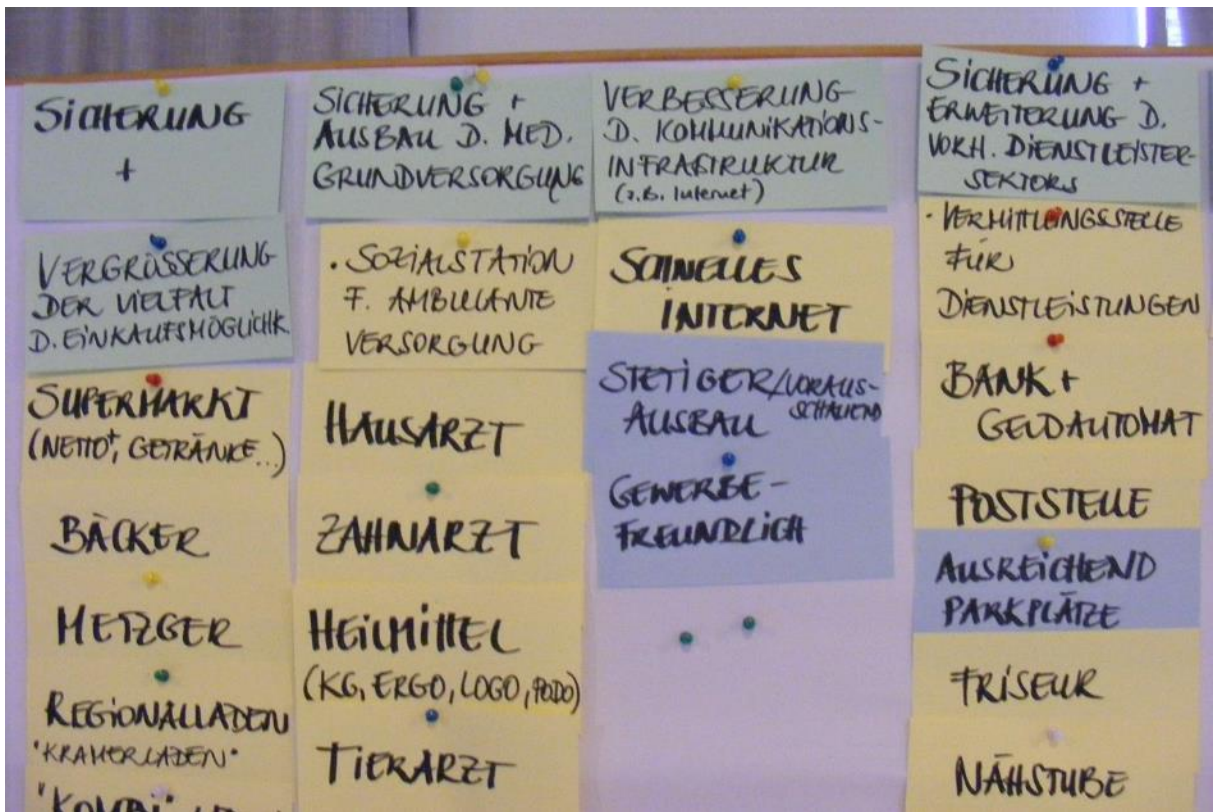 SICHERUNG
+
VERGRÖSSERUNG
DER VIELFALT
D. EINKAUFSMÖGLICHK
SUPERMARKT
(NETTO+, GETRÄNKE...)
BÄCKER
METZGER
REGIONALLADEN
"KRAMERLADEN"
"KOMBI"
SICHERUNG +
AUSBAU D. MED.
GRUNDVERSORGUNG
· SOZIALSTATION
F. AMBULANTE
VERSORGUNG
HAUSARZT
ZAHNARZT
HEILMITTEL
(KG, ERGO, LOGO, PODO)
TIERARZT
VERBESSERUNG
D. KOMMUNIKATIONS-
INFRASTRUKTUR
(z.B. Internet)
SCHNELLES
INTERNET
STETIGER/VORAUS-
SCHAUEND
AUSBAU
GEWERBE-
FREUNDLICH
SICHERUNG +
ERWEITERUNG D.
VORH. DIENSTLEISTER-
SEKTORS
· VERMITTLUNGSSTELLE
FÜR
DIENSTLEISTUNGEN
BANK +
GELDAUTOMAT
POSTSTELLE
AUSREICHEND
PARKPLÄTZE
FRISEUR
NÄHSTUBE